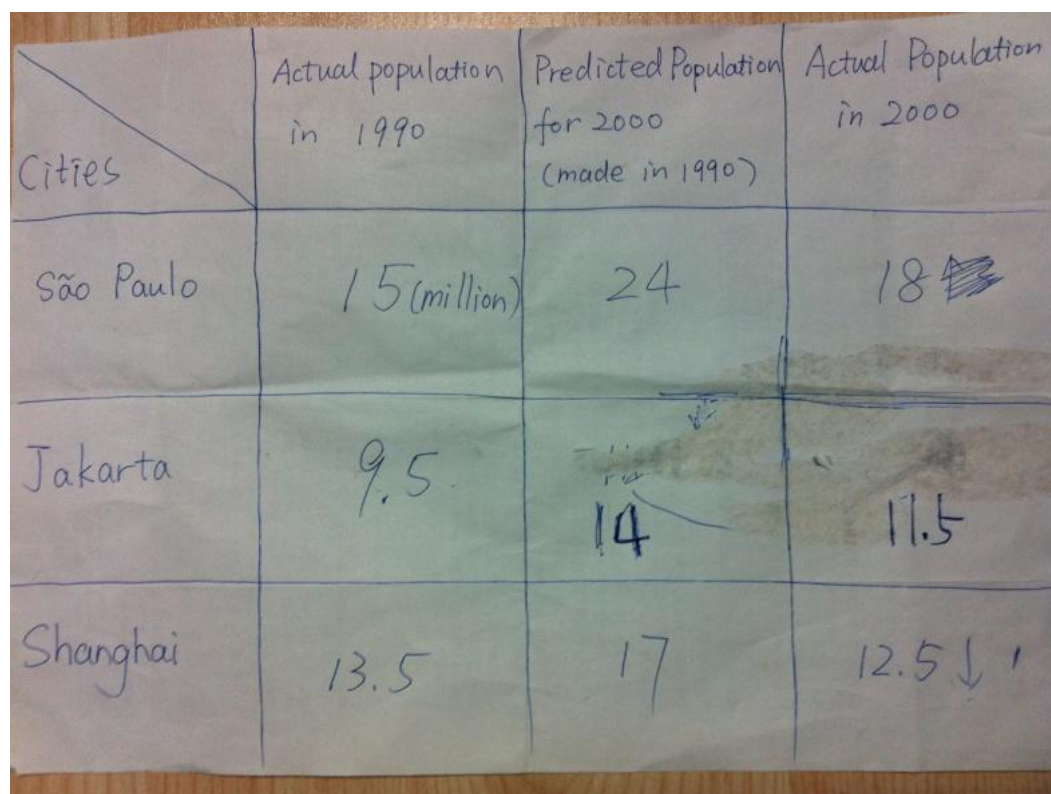 Cities
Actual population
in 1990
Predicted Population
for 2000
(made in 1990)
Actual Population
in 2000
São Paulo
15 (million)
24
18
Jakarta
9.5
14
11.5
Shanghai
13.5
17
12.5 ↓